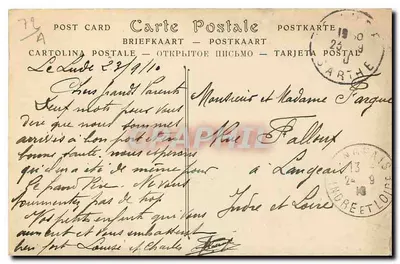 72
A
POST CARD Carte Postale POSTKARTE
BRIEFKAART — POSTKAART
CARTOLINA POSTALE — ОТКРЫТОЕ ПИСЬМО — TARJETA POSTAL
SARTHE
Le Lude 22/9/10
Chers grands Parents
Deux mots pour vous
dire que nous sommes
arrivés à bon port et en
bonne santé, nous espérons
qu'il en a été de même pour
le grand Rue. Ne vous
tourmentez pas de trop
Vos petits enfants qui vous
aiment et vous embrassent
bien fort Louise et Charles
Monsieur et Madame Fargue
Rue Falloux
à Langeais
Indre et Loire
LANGEAIS
13
24 - 9
10
INDRE ET LOIRE
CPARAMA